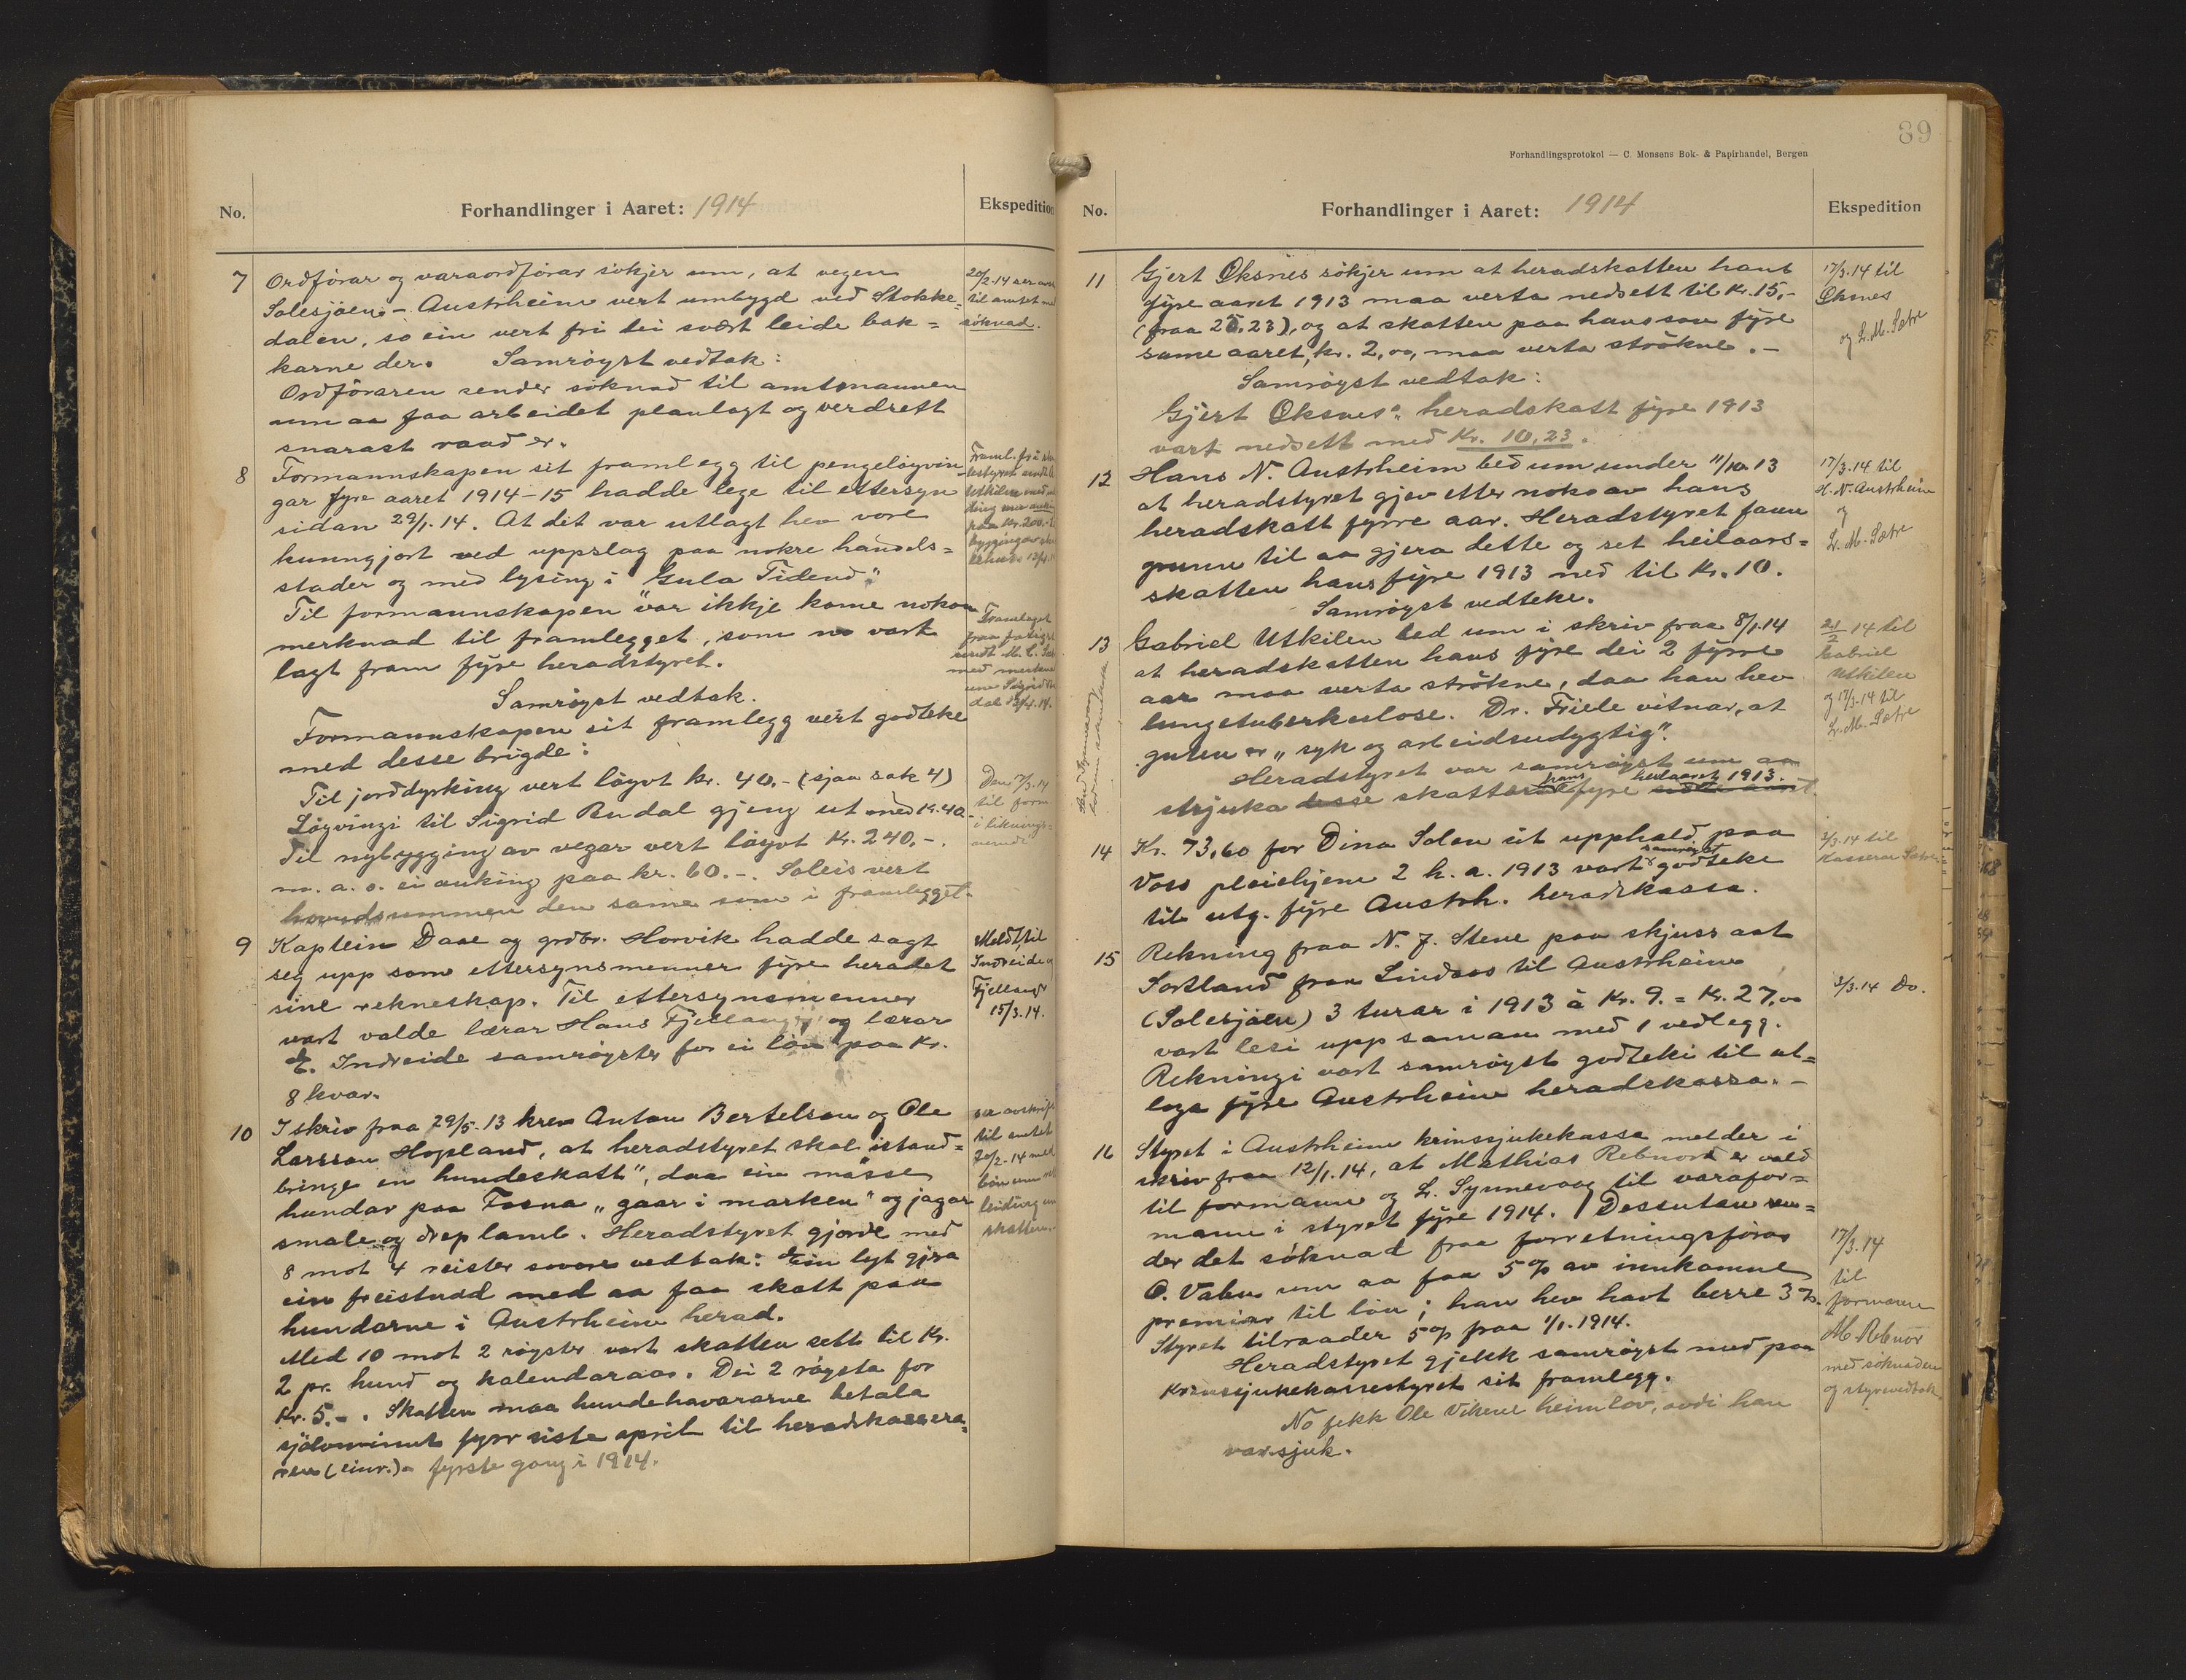 No.
Forhandlinger i Aaret: 1914
Ekspedition
7
Ordförar og varaordförar sökjer um, at vegen
Solesjöen - Austrheim vert umbygd ved Stokke=
dalen, so ein vert fri dei svært leide bak=
karne der. Samröyst vedtak:
Ordföraren sender söknad til amtsmannen
um aa faa arbeidet planlagt og verdsett
snarast raad er.
20/2-14
til amtet
söknad.
8
Formannskapen sit framlegg til pengelöyvin
gar fyre aaret 1914-15 hadde lege til ettersyn
sidan 29/1.14. At dit var utlagt hev vore
kunngjort ved uppslag paa nokre handels=
stader og med lysing i "Gula Tidend".
Til formannskapen var ikkje kome nokon
merknad til framlegget, som no vart
lagt fram fyre heradstyret.
Samröyst vedtak.
Formannskapen sit framlegg vert godteke
med desse brigde:
Til jorddyrking vert löyvt kr. 40,- (sjaa sak 4)
Löyvingi til Sigrid Rudal gjeng ut med kr. 40.-
Til nybygging av vegar vert löyvt Kr. 240,-.
m. a. o. ei auking paa kr. 60.-. Soleis vert
hovudsummen den same som i framlegget.
Framlaget
med
dal 15/4.14.
Den 7/3.14
til form
i liknings=
nemdi
9
Kaptein Daae og grdbr. Horvik hadde sagt
seg upp som ettersynsmenner fyre heradet
sine rekneskap. Til ettersynsmenner
vart valde lærar Hans Fjellanger og lærar
E. Indreide samröystes for ei lön paa Kr.
8 kvar.
Meldt til
Indreide og
Fjellanger
15/3.14.
10
I skriv fraa 29/5-13 krev Anton Bertelsen og Ole
Larsson Hopland, at heradstyret skal istand=
bringe en hundeskatt", daa ein masse
hundar paa Fosna „gaar i marken" og jagar
smale og drep lamb. Heradstyret gjorde med
8 mot 4 röister sovore vedtak: Ein lyt gjera
ein freistnad med aa faa skatt paa
hundarne i Austrheim herad.
Med 10 mot 2 röyster vart skatten sett til Kr.
2 pr. hund og kalendaraar. Dei 2 röysta for
Kr. 5.-. Skatten maa hundehavararne betala
sjölvmint fyrr siste april til heradskassera=
ren (einr.). fyrste gong i 1914.
ser avskrift
til amtet
20/2-14 med
bön um
leiding um
skatten.
89
Forhandlingsprotokol — C. Monsens Bok- & Papirhandel, Bergen
No.
Forhandlinger i Aaret: 1914
Ekspedition
11
Gjert Øksnes sökjer um at heradskatten hans
fyre aaret 1913 maa verta nedsett til Kr. 15,-
(fraa 25,23), og at skatten paa hans son fyre
same aaret, kr. 2,00, maa verta strökne.-
Samröyst vedtak:
Gjert Øksnes" heradskatt fyre 1913
vart nedsett med Kr. 10,23.
17/3.14 til
Øksnes
og L.M. Sætre
12
Hans N. Austrheim bed um under 11/10.13
at heradstyret gjev etter noko av hans
heradskatt fyrre aar. Heradstyret fann
grunn til aa gjera dette og set heilaars=
skatten hans fyre 1913 ned til Kr. 10.
Samröyst vedteke.
17/3.14 til
H. N. Austrheim
og
L. M. Sætre
13
Gabriel Utkilen bed um i skriv fraa 8/1.14
at heradskatten hans fyre dei 2 fyrre
aar maa verta strökne, daa han hev
lungetuberkulose. Dr. Friele vitnar, at
guten er „syk og arbeidsudygtig".
Heradstyret var samröyst um aa
strjuka desse skatten hans fyre heilaaret 1913.
21/2 14 til
Gabriel
Utkilen
og 17/3.14 til
L. M. Sætre
14
Kr. 73,60 for Dina Solen sit upphald paa
Voss pleiehjem 2 h. a. 1913 vart samröyst godteke
til utg. fyre Austrh. heradskassa.
3/3.14 til
Kasserar Sætre
15
Rekning fraa N. J. Stene paa skjuss aat
Sortland fraa Lindaas til Austrheim
(Solesjöen) 3 turar i 1913 à Kr. 9. = Kr. 27,00
vart lesi upp saman med 1 vedlegg.
Rekningi vart samröyst godteki til ut=
loga fyre Austrheim heradskassa.-
3/3.14 Do.
16
Styret i Austrheim krinssjukekasse melder i
skriv fraa 12/1.14, at Mathias Rebnord er vald
til formann og L. Synnevaag til varafor=
mann i styret fyre 1914. Dessutan sen=
der det söknad fraa forretningsförar
O. Vabn um aa faa 5 % av innkomne
premiar til lön; han hev havt berre 3 %.
Styret tilraader 5 % fraa 1/1.1914.
Heradstyret gjekk samröyst med paa
Krinssjukekassestyret sit framlegg.
No fekk Ole Vikene heimlov, avdi han
var sjuk.
17/3.14
til
formann
M. Rebnor
med söknaden
og styrevedtak